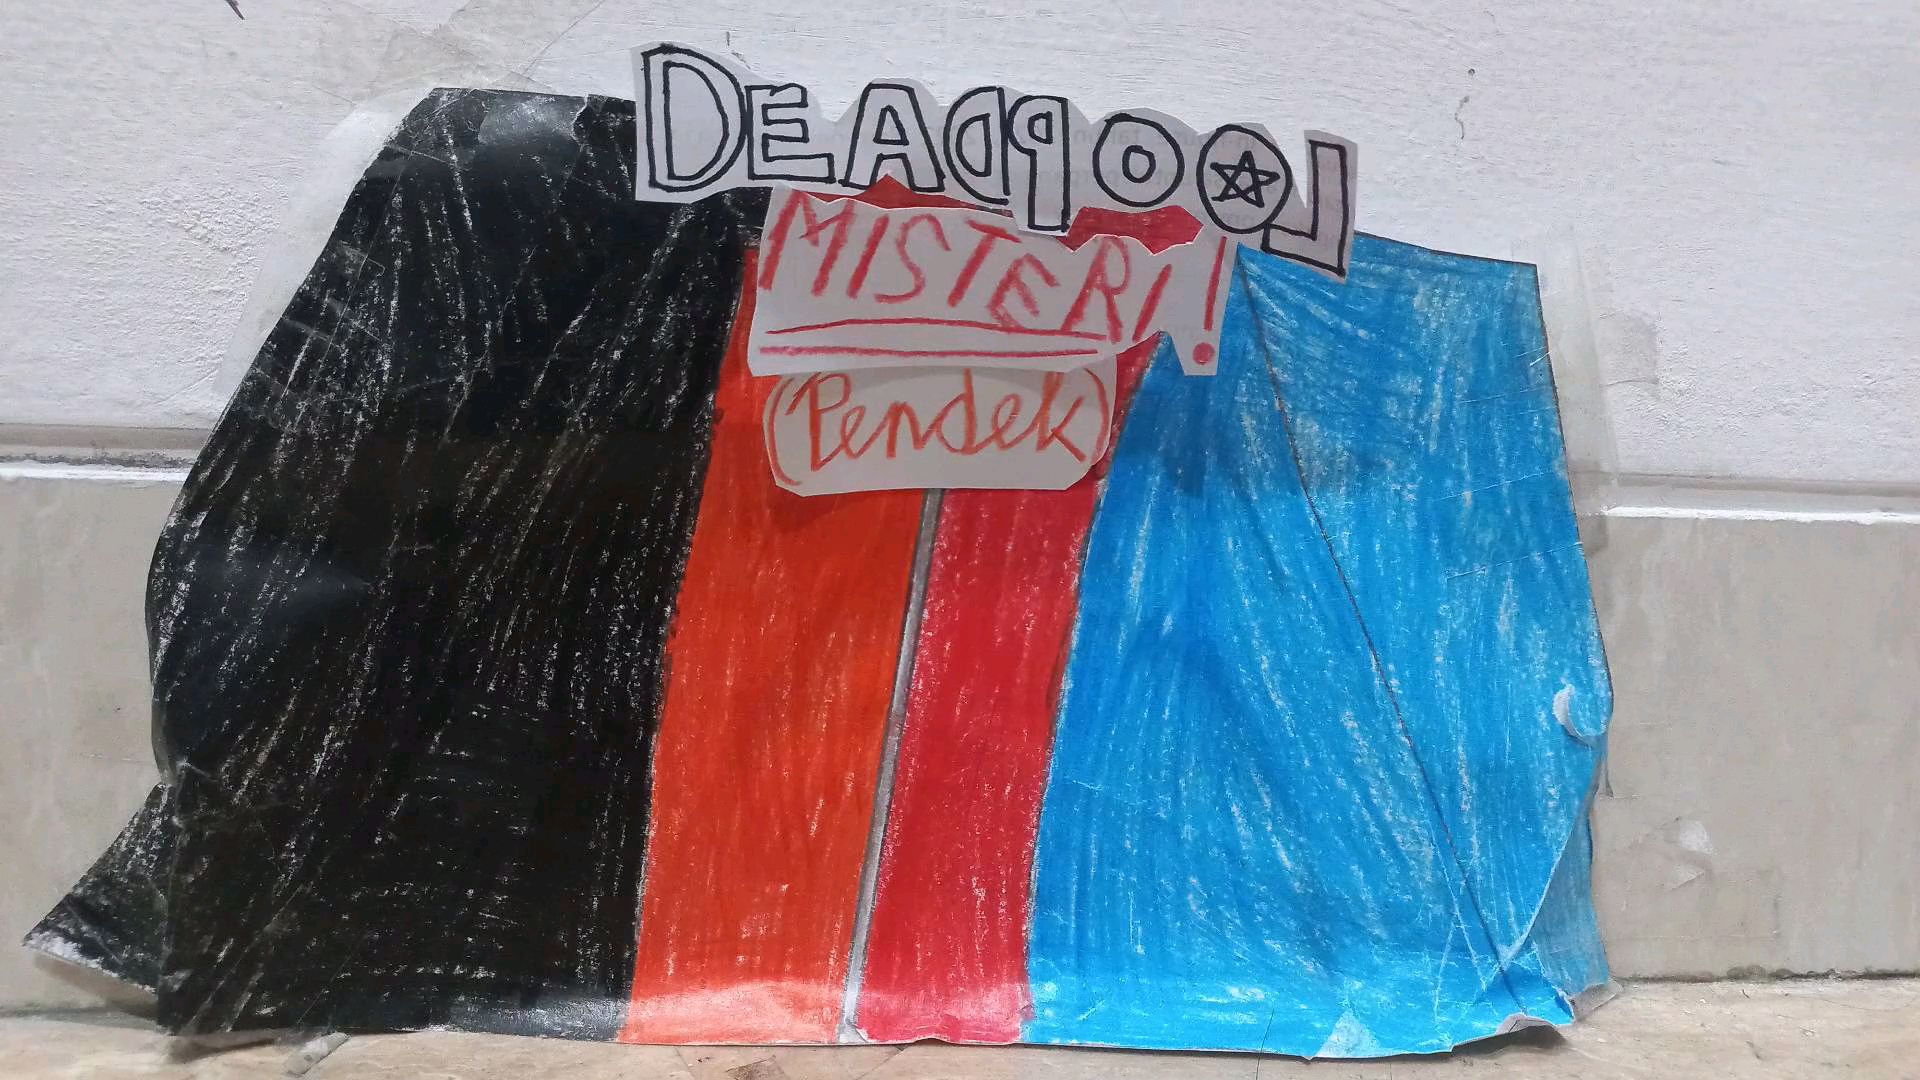 DEADPOOL
MISTERI!
(Pendek)